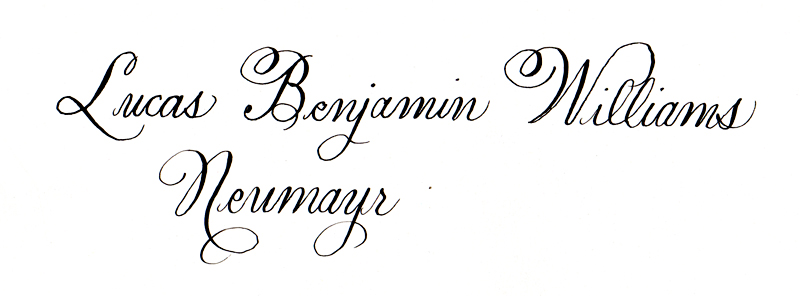 Lucas Benjamin Williams
Neumayr